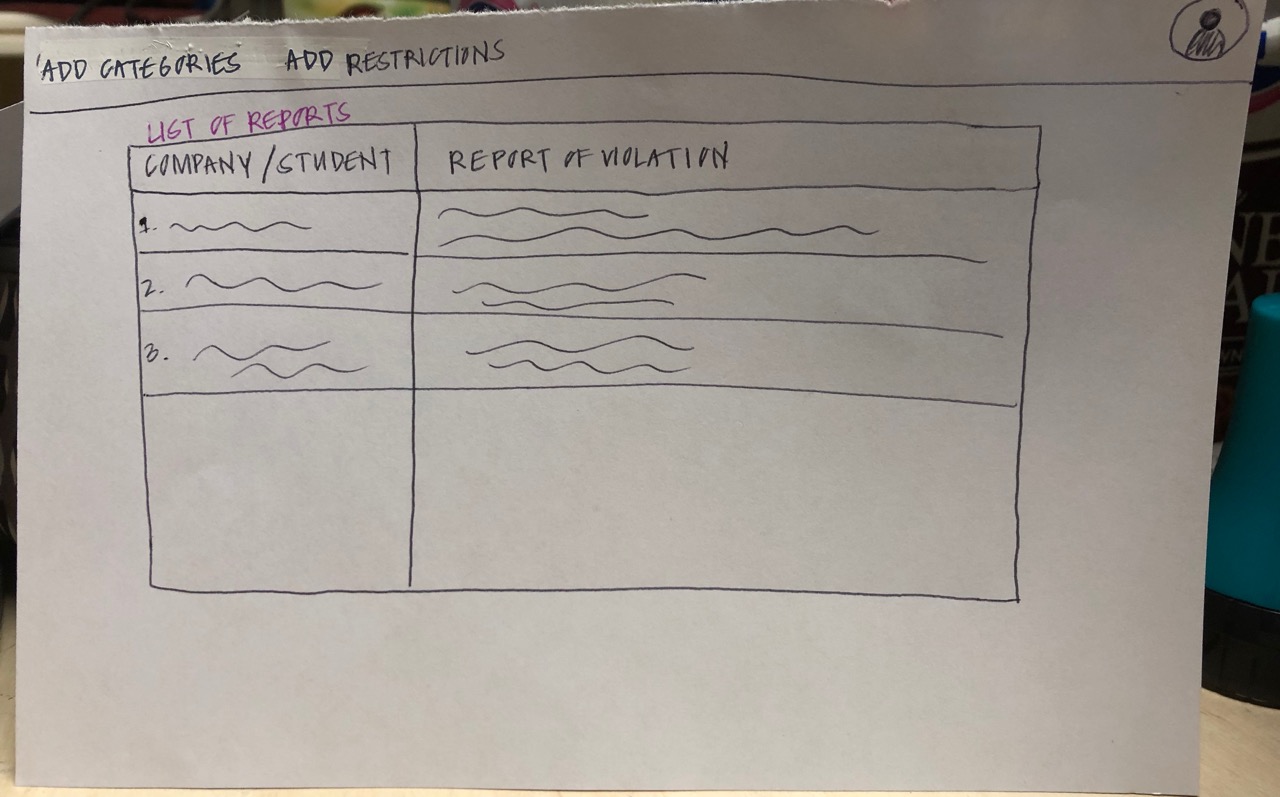 ADD CATEGORIES ADD RESTRICTIONS
LIST OF REPORTS
COMPANY/STUDENT REPORT OF VIOLATION
1.
2.
3.